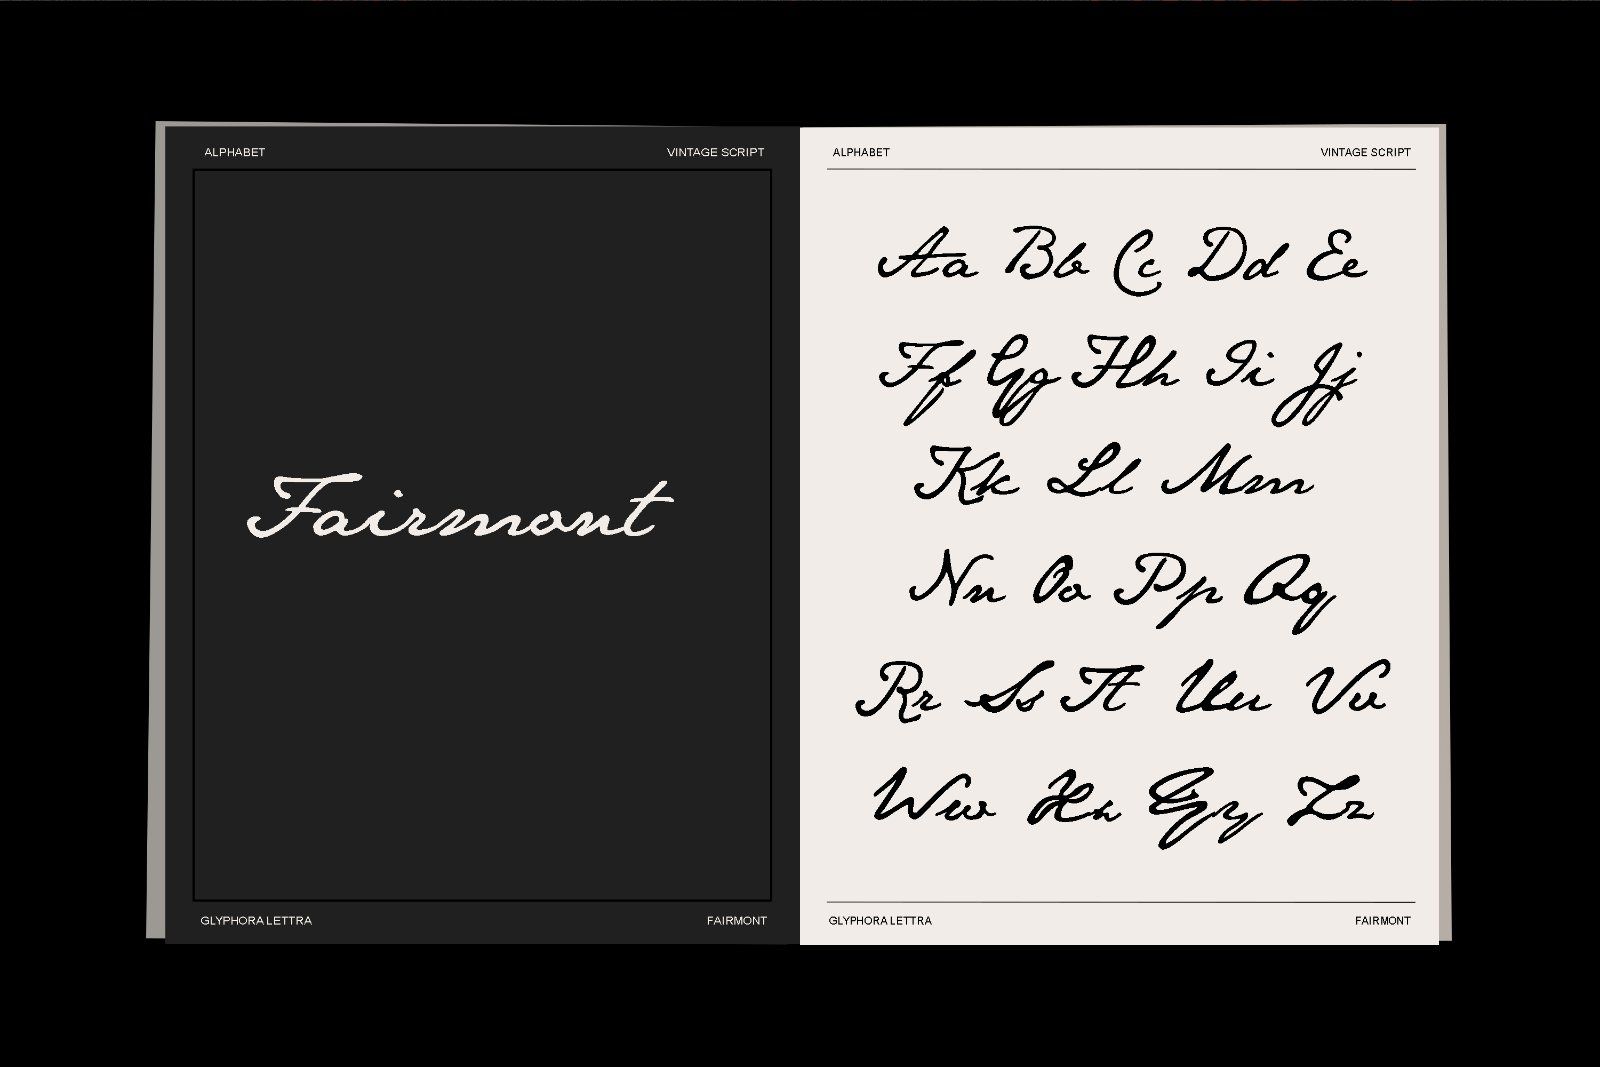 ALPHABET VINTAGE SCRIPT
Fairmont
GLYPHORA LETTRA FAIRMONT
ALPHABET VINTAGE SCRIPT
Aa Bb Cc Dd Ee
Ff Gg Hh Ii Jj
Kk Ll Mm
Nn Oo Pp Qq
Rr Ss Tt Uu Vv
Ww Xx Yy Zz
GLYPHORA LETTRA FAIRMONT